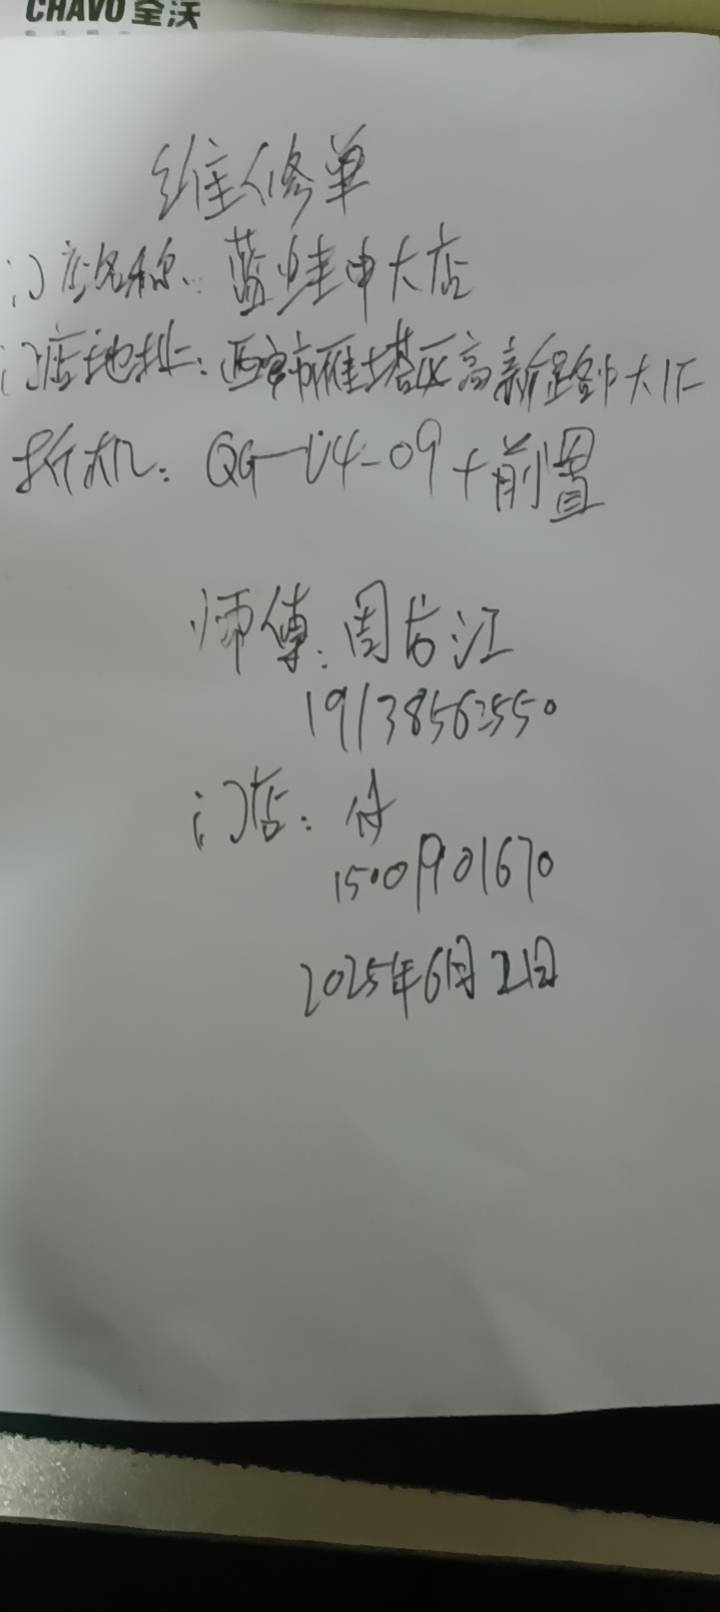 CHAVO 全沃
维修单
门店名称：蓝蛙中大店
门店地址：西安市雁塔区高新路中大仁
拆机：QG-U4-09+前置
师傅：周占江
19138562550
门店：付
15009901670
2025年6月21日